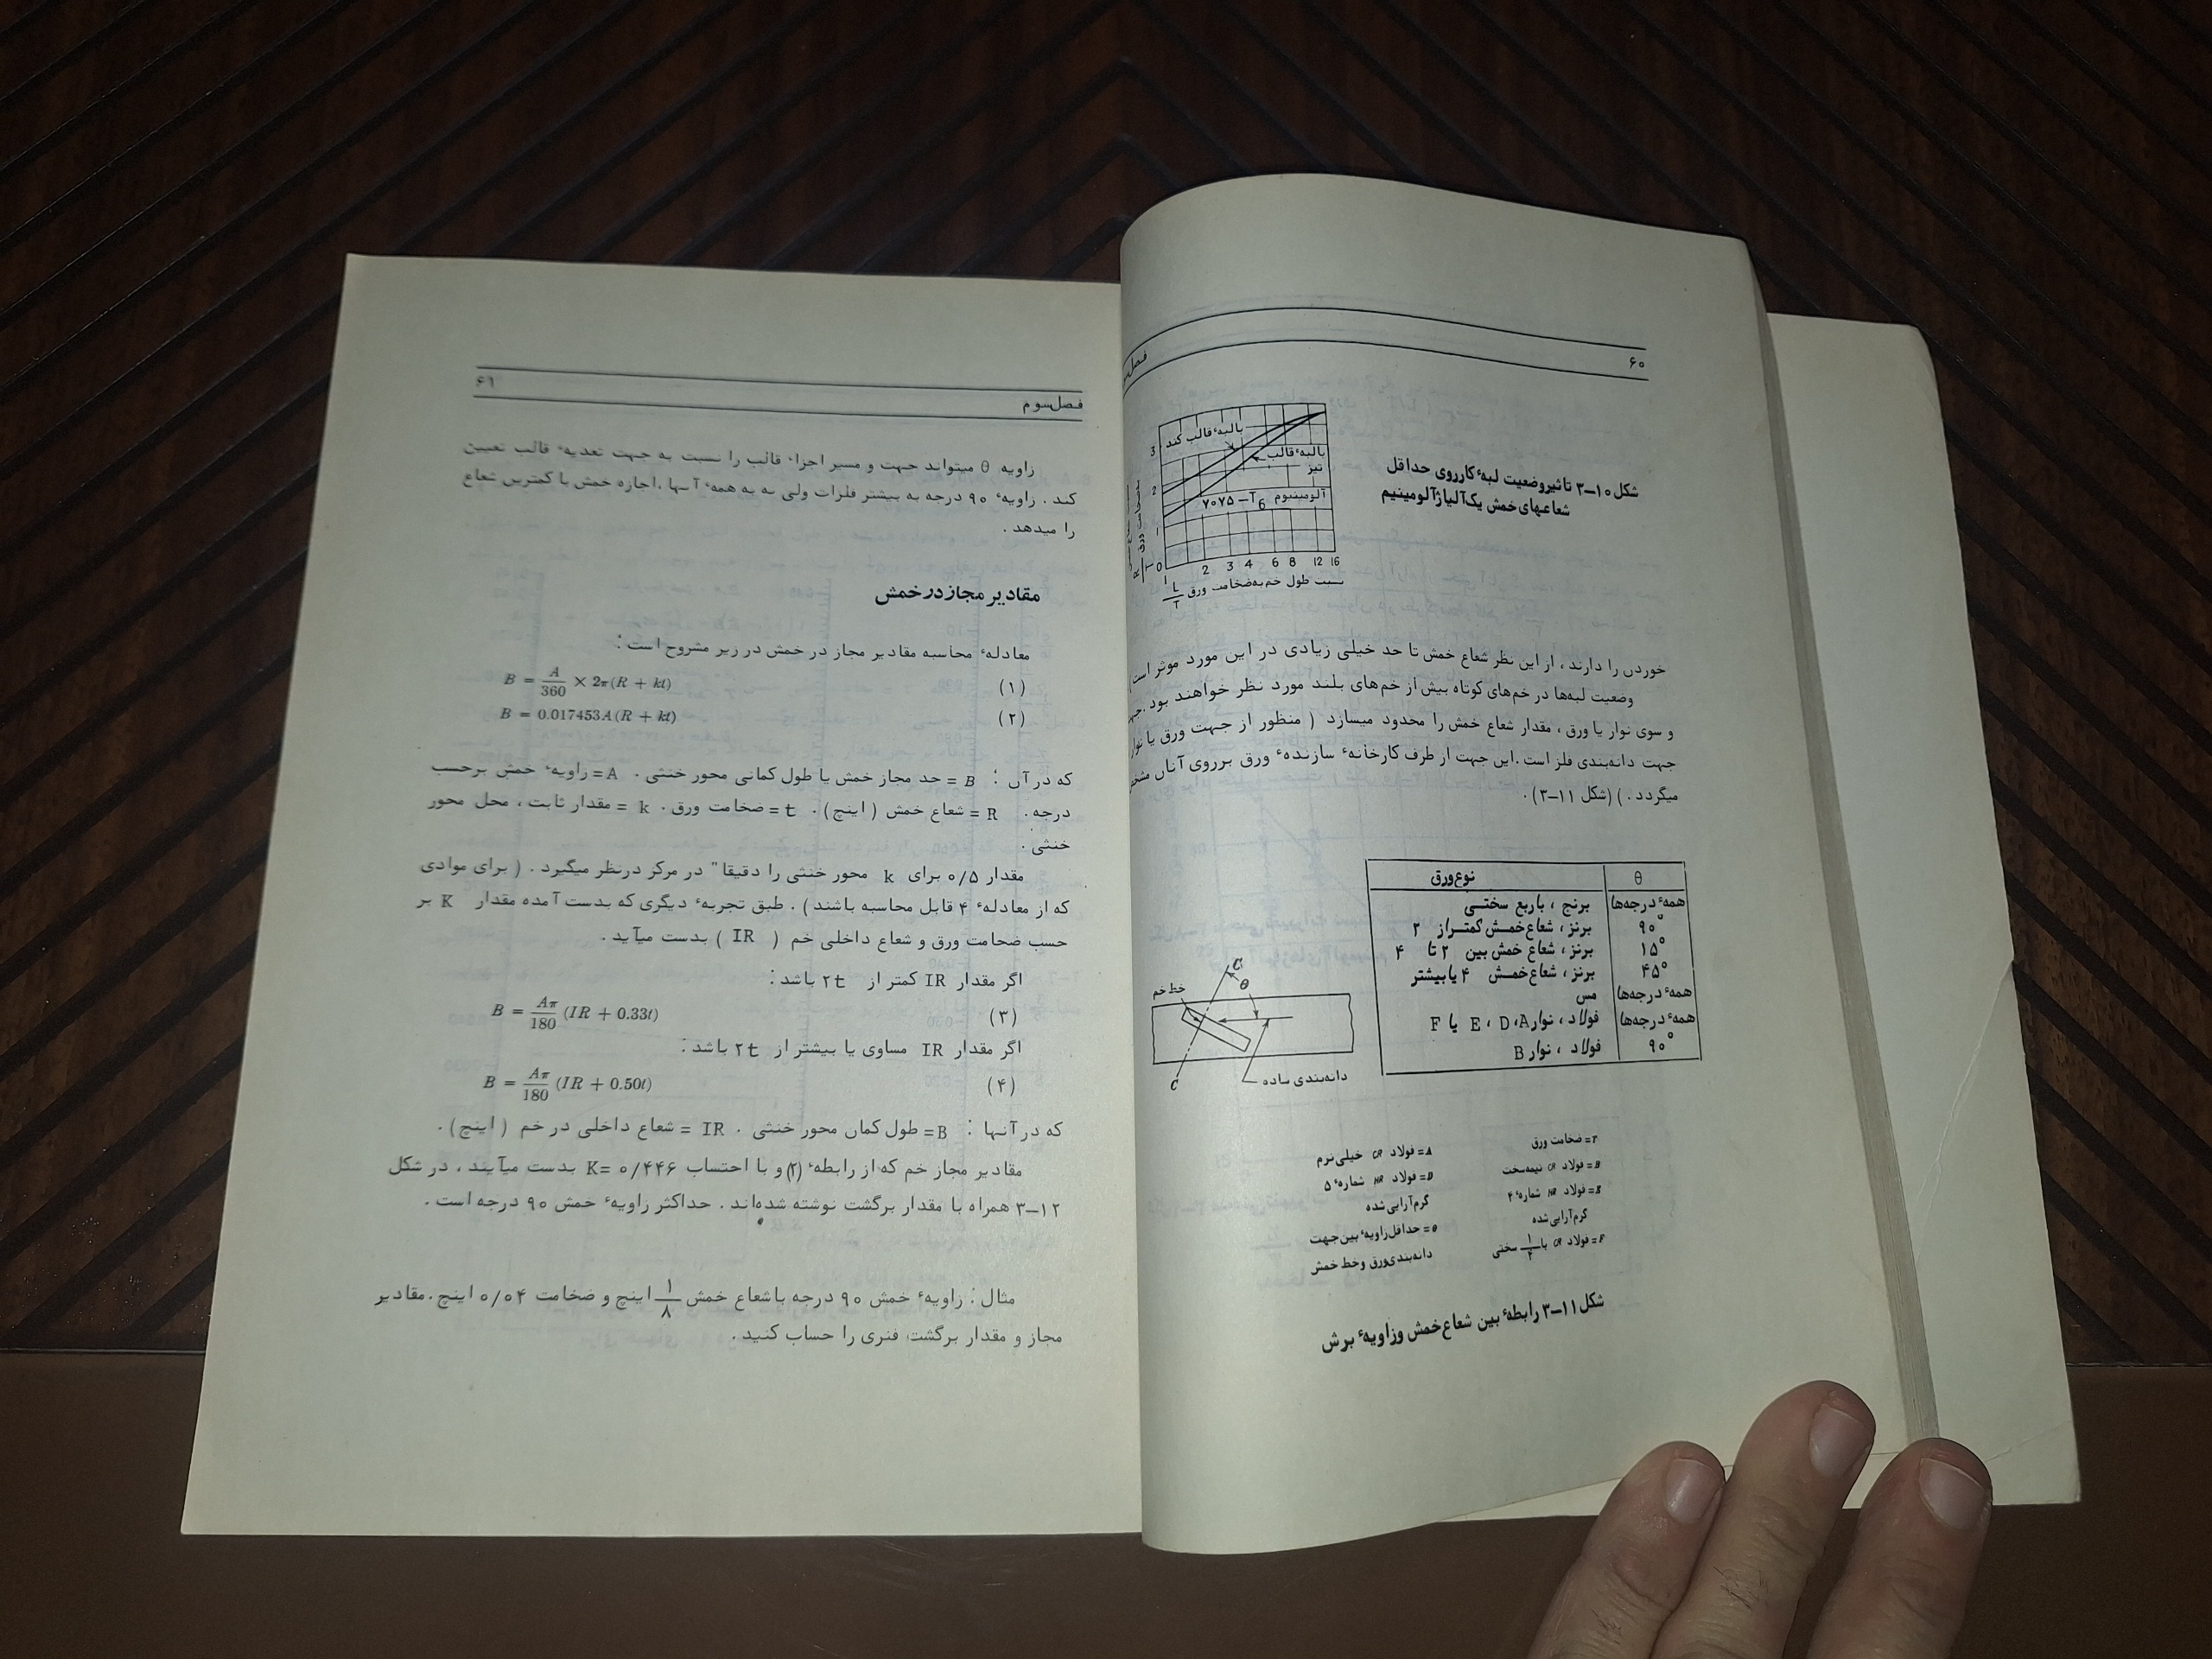 ۶۰
شکل ۱۰–۳ تاثیر وضعیت لبه‌ٔ کار روی حداقل
شعاعهای خمش یک آلیاژ آلومینیم
3
2
1
0
بالبه‌ٔ قالب کند
بالبه‌ٔ قالب
تیز
آلومینیوم 6 T– ۷۰۷۵
1 2 3 4 6 8 12 16
نسبت طول خم به ضخامت ورق L/T
R/T
خوردن را دارند ، از این نظر شعاع خمش تا حد خیلی زیادی در این مورد موثر است
وضعیت لبه‌ها در خم‌های کوتاه بیش از خم‌های بلند مورد نظر خواهند بود .
و سوی نوار یا ورق ، مقدار شعاع خمش را محدود میسازد ( منظور از جهت ورق یا نوار
جهت دانه‌بندی فلز است .این جهت از طرف کارخانه‌ٔ سازنده‌ٔ ورق برروی آنان
میگردد . ) (شکل ۱۱–۳) .
θ نوع ورق
همه‌ٔ درجه‌ها برنج ، باربع سختی
۹۰° برنز ، شعاع خمش کمتر از ۲
۱۵° برنز ، شعاع خمش بین ۲ تا ۴
۴۵° برنز ، شعاع خمش ۴ یا بیشتر
همه‌ٔ درجه‌ها مس
همه‌ٔ درجه‌ها فولاد ، نوار A، D، E یا F
۹۰° فولاد ، نوار B
C
θ
خط خم
C
دانه‌بندی ساده
T= ضخامت ورق
B= فولاد CR نیمه‌سخت
E= فولاد HR شماره‌ٔ ۴
گرم‌آرایی شده
F= فولاد CR با ۱/۴ سختی
A= فولاد CR خیلی نرم
D= فولاد HR شماره‌ٔ ۵
گرم‌آرایی شده
θ= حداقل زاویه‌ٔ بین جهت
دانه‌بندی ورق و خط خمش
شکل ۱۱–۳ رابطه‌ٔ بین شعاع خمش وزاویه‌ٔ برش
۶۱
فصل سوم
زاویه θ میتواند جهت و مسیر اجزاء قالب را نسبت به جهت تغذیه‌ٔ قالب تعیین
کند . زاویه‌ٔ ۹۰ درجه به بیشتر فلزات ولی نه به همه‌ٔ آنها ،اجازه خمش با کمترین شعاع
را میدهد .
مقادیر مجاز در خمش
معادله‌ٔ محاسبه مقادیر مجاز در خمش در زیر مشروح است :
(۱) B = A/360 × 2π(R + kt)
(۲) B = 0.017453A(R + kt)
که در آن : B = حد مجاز خمش یا طول کمانی محور خنثی . A= زاویه‌ٔ خمش برحسب
درجه . R = شعاع خمش ( اینچ ) . t = ضخامت ورق . k = مقدار ثابت ، محل محور
خنثی .
مقدار ۰/۵ برای k محور خنثی را دقیقا" در مرکز درنظر میگیرد . ( برای موادی
که از معادله‌ٔ ۴ قابل محاسبه باشند ) . طبق تجربه‌ٔ دیگری که بدست آمده مقدار K بر
حسب ضخامت ورق و شعاع داخلی خم ( IR ) بدست میآید .
اگر مقدار IR کمتر از ۲t باشد :
(۳) B = Aπ/180 (IR + 0.33t)
اگر مقدار IR مساوی یا بیشتر از ۲t باشد :
(۴) B = Aπ/180 (IR + 0.50t)
که در آنها : B= طول کمان محور خنثی . IR = شعاع داخلی در خم ( اینچ ) .
مقادیر مجاز خم که از رابطه‌ٔ (۲) و با احتساب K= ۰/۴۴۶ بدست میآیند ، در شکل
۱۲–۳ همراه با مقدار برگشت نوشته شده‌اند . حداکثر زاویه‌ٔ خمش ۹۰ درجه است .
مثال : زاویه‌ٔ خمش ۹۰ درجه باشعاع خمش ۱/۸ اینچ و ضخامت ۰/۰۴ اینچ .مقادیر
مجاز و مقدار برگشت فنری را حساب کنید .